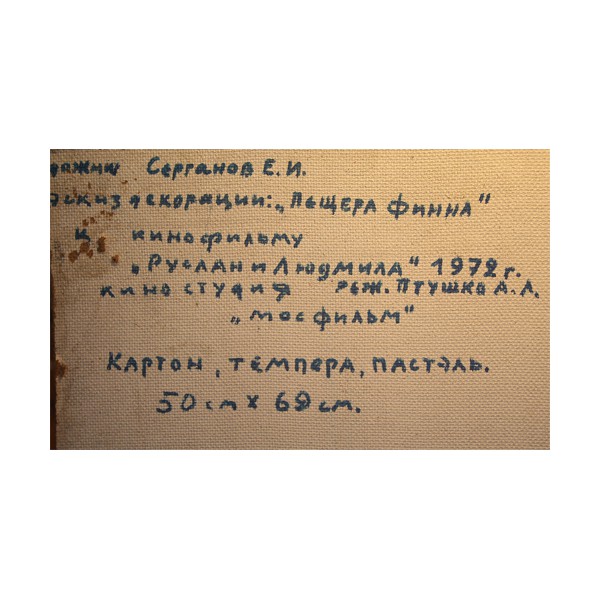 Серганов Е.И.
эскиз декорации: „Пещера Финна"
к кинофильму
„Руслан и Людмила" 1972 г.
киностудия реж. Птушко А.Л.
„Мосфильм"
Картон, темпера, пастэль.
50 см х 69 см.